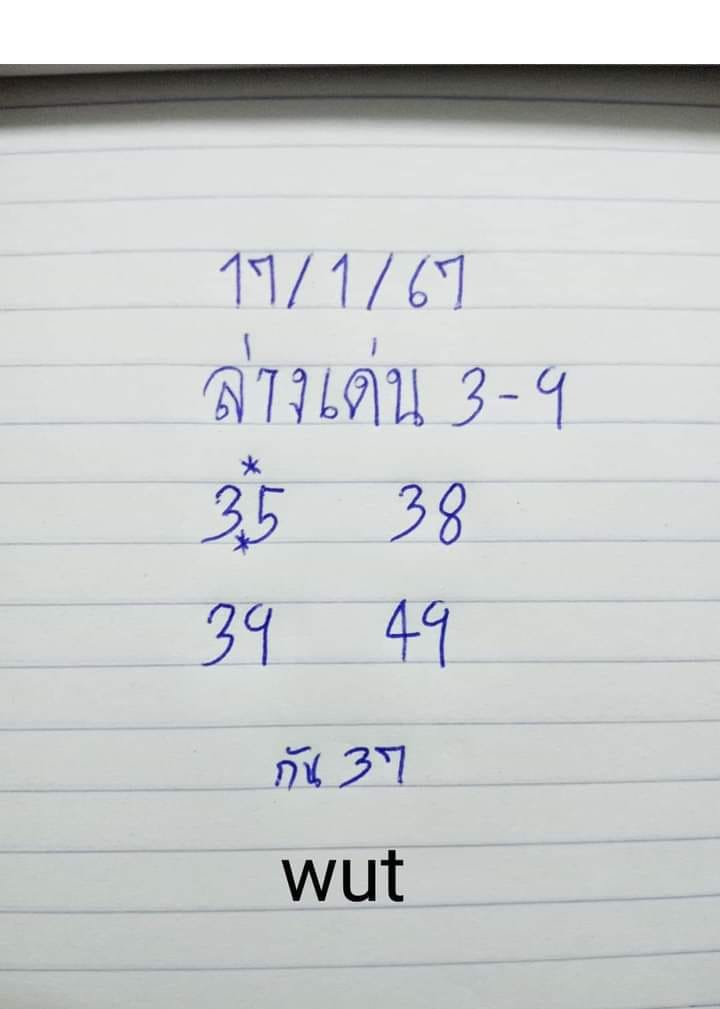 17/1/67
ล่างเด่น 3-9
*
35 38
*
39 49
กัน 37
wut